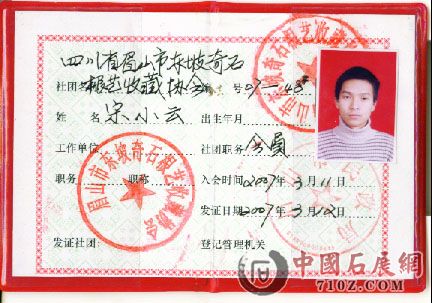 四川省眉山市东坡奇石
社团名 根艺收藏协会 号 07—48
姓 名 宋小云 出生年月
工作单位 社团职务 会员
职务 职称 入会时间 2007年3月11日
发证日期 2007年3月12日
发证社团: 登记管理机关
眉山市东坡奇石根艺收藏协会
中國石展網
71OZ.COM